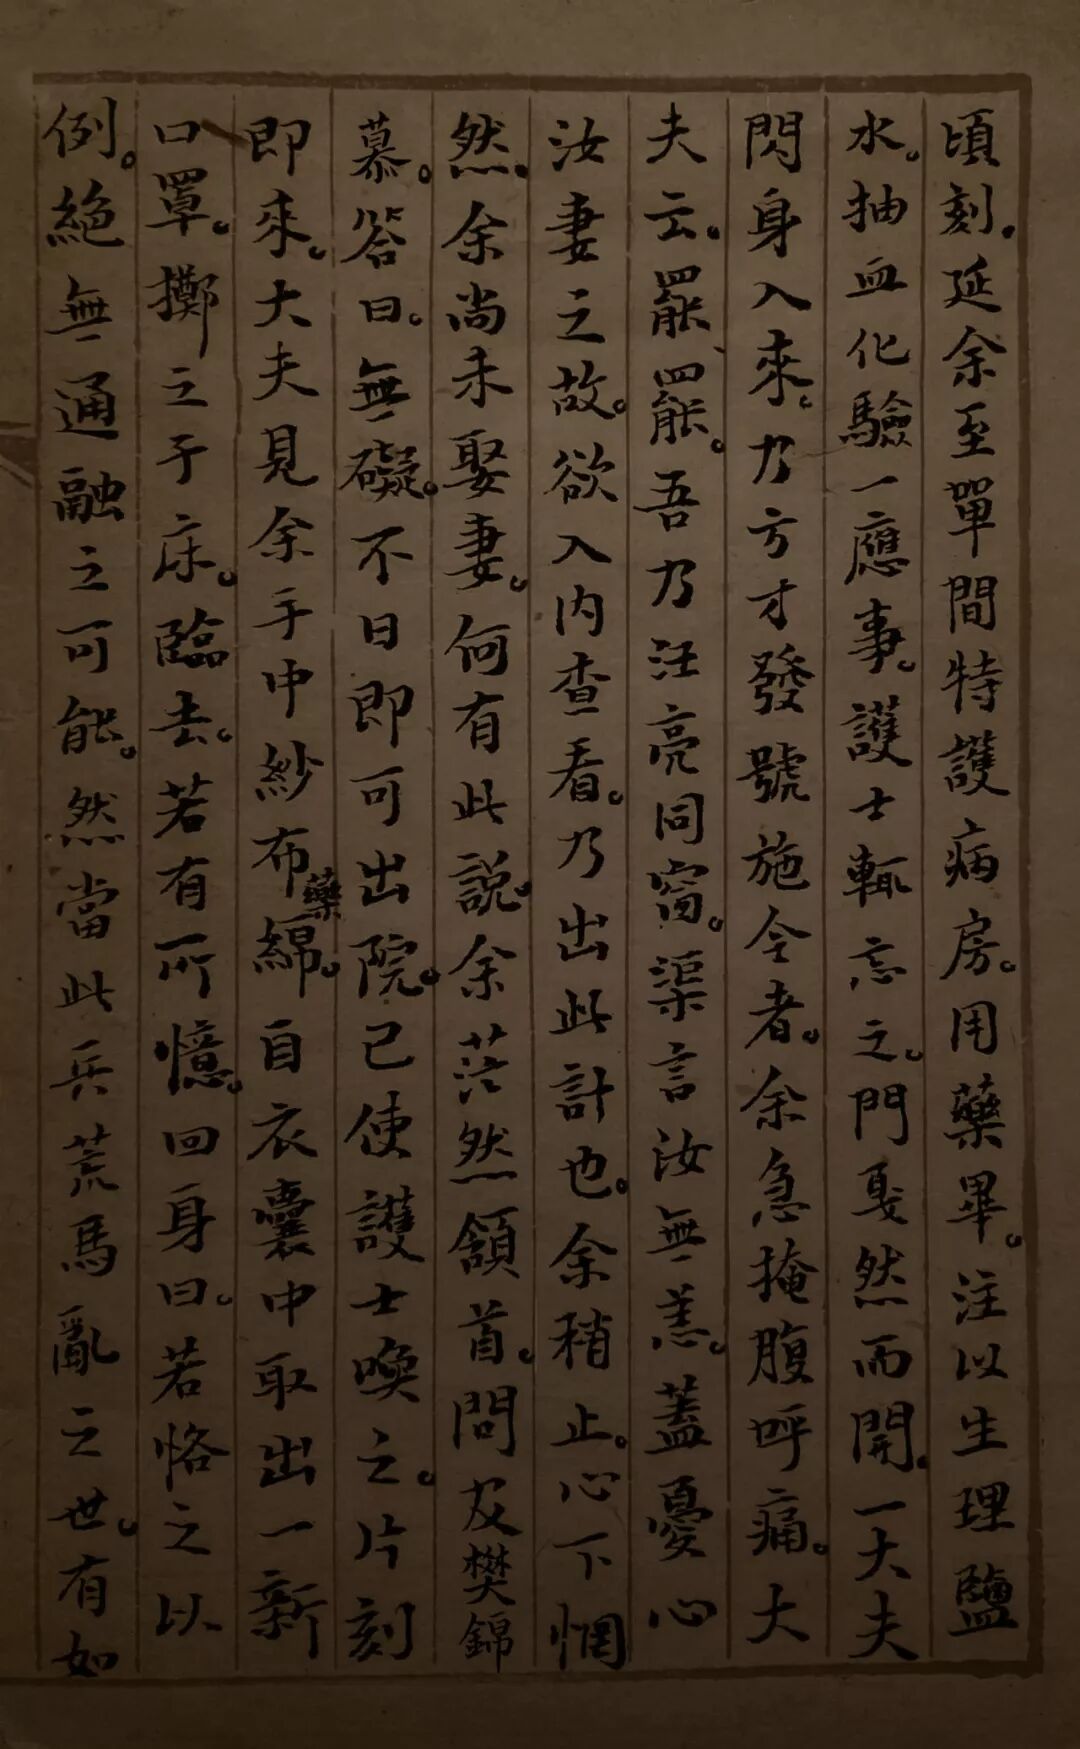 頃刻。延余至單間特護病房。用藥畢。注以生理鹽
水。抽血化驗一應事。護士輒忘之。門戛然而開。一大夫
閃身入來。乃方才發號施令者。余急掩腹呼痛。大
夫云。罷罷。吾乃汪亮同窗。渠言汝無恙。蓋憂心
汝妻之故。欲入內查看。乃出此計也。余稍止。心下惘
然。余尚未娶妻。何有此說。余茫然頷首。問及樊錦
慕。答曰。無礙。不日即可出院。已使護士喚之。片刻
即來。大夫見余手中紗布藥綿。自衣囊中取出一新
口罩。擲之于床。臨去。若有所憶。回身曰。若恪之以
例。絕無通融之可能。然當此兵荒馬亂之世。有如